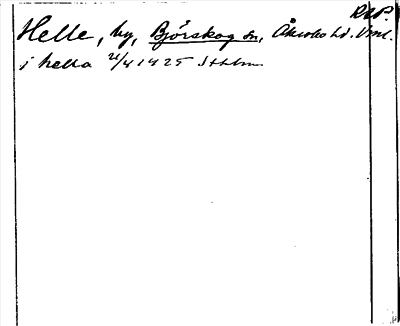 RAP.
Helle, by, Björskog sn, Åkerbo hd. Vml.
i hella 21/4 1425 Sthlm